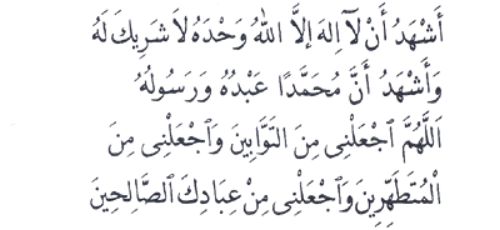 أَشْهَدُ أَنْ لَآ اِلهَ إلَّا اللهُ وَحْدَهُ لاَ شَرِيكَ لَهُ
وَأَشْهَدُ أَنَّ مُحَمَّدًا عَبْدُهُ وَرَسُولُهُ
اَللَّهُمَّ ٱجْعَلْنِى مِنَ التَّوَّابِينَ وَٱجْعَلْنِى مِنَ
الْمُتَطَهِّرِينَ وَٱجْعَلْنِى مِنْ عِبَادِكَ ٱلصَّالِحِينَ